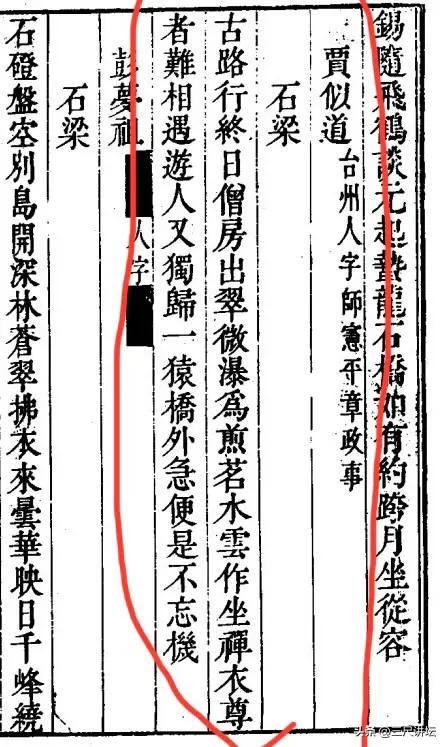 錫隨飛鶴談元起蟄龍石橋如有約跨月坐從容
賈似道台州人字師憲平章政事
石梁
古路行終日僧房出翠微瀑為煎茗水雲作坐禪衣尊
者難相遇遊人又獨歸一猿橋外急便是不忘機
彭夢祖人字
石梁
石磴盤空別島開深林蒼翠拂衣來曇華映日千峰繞
头条@三尺讲坛